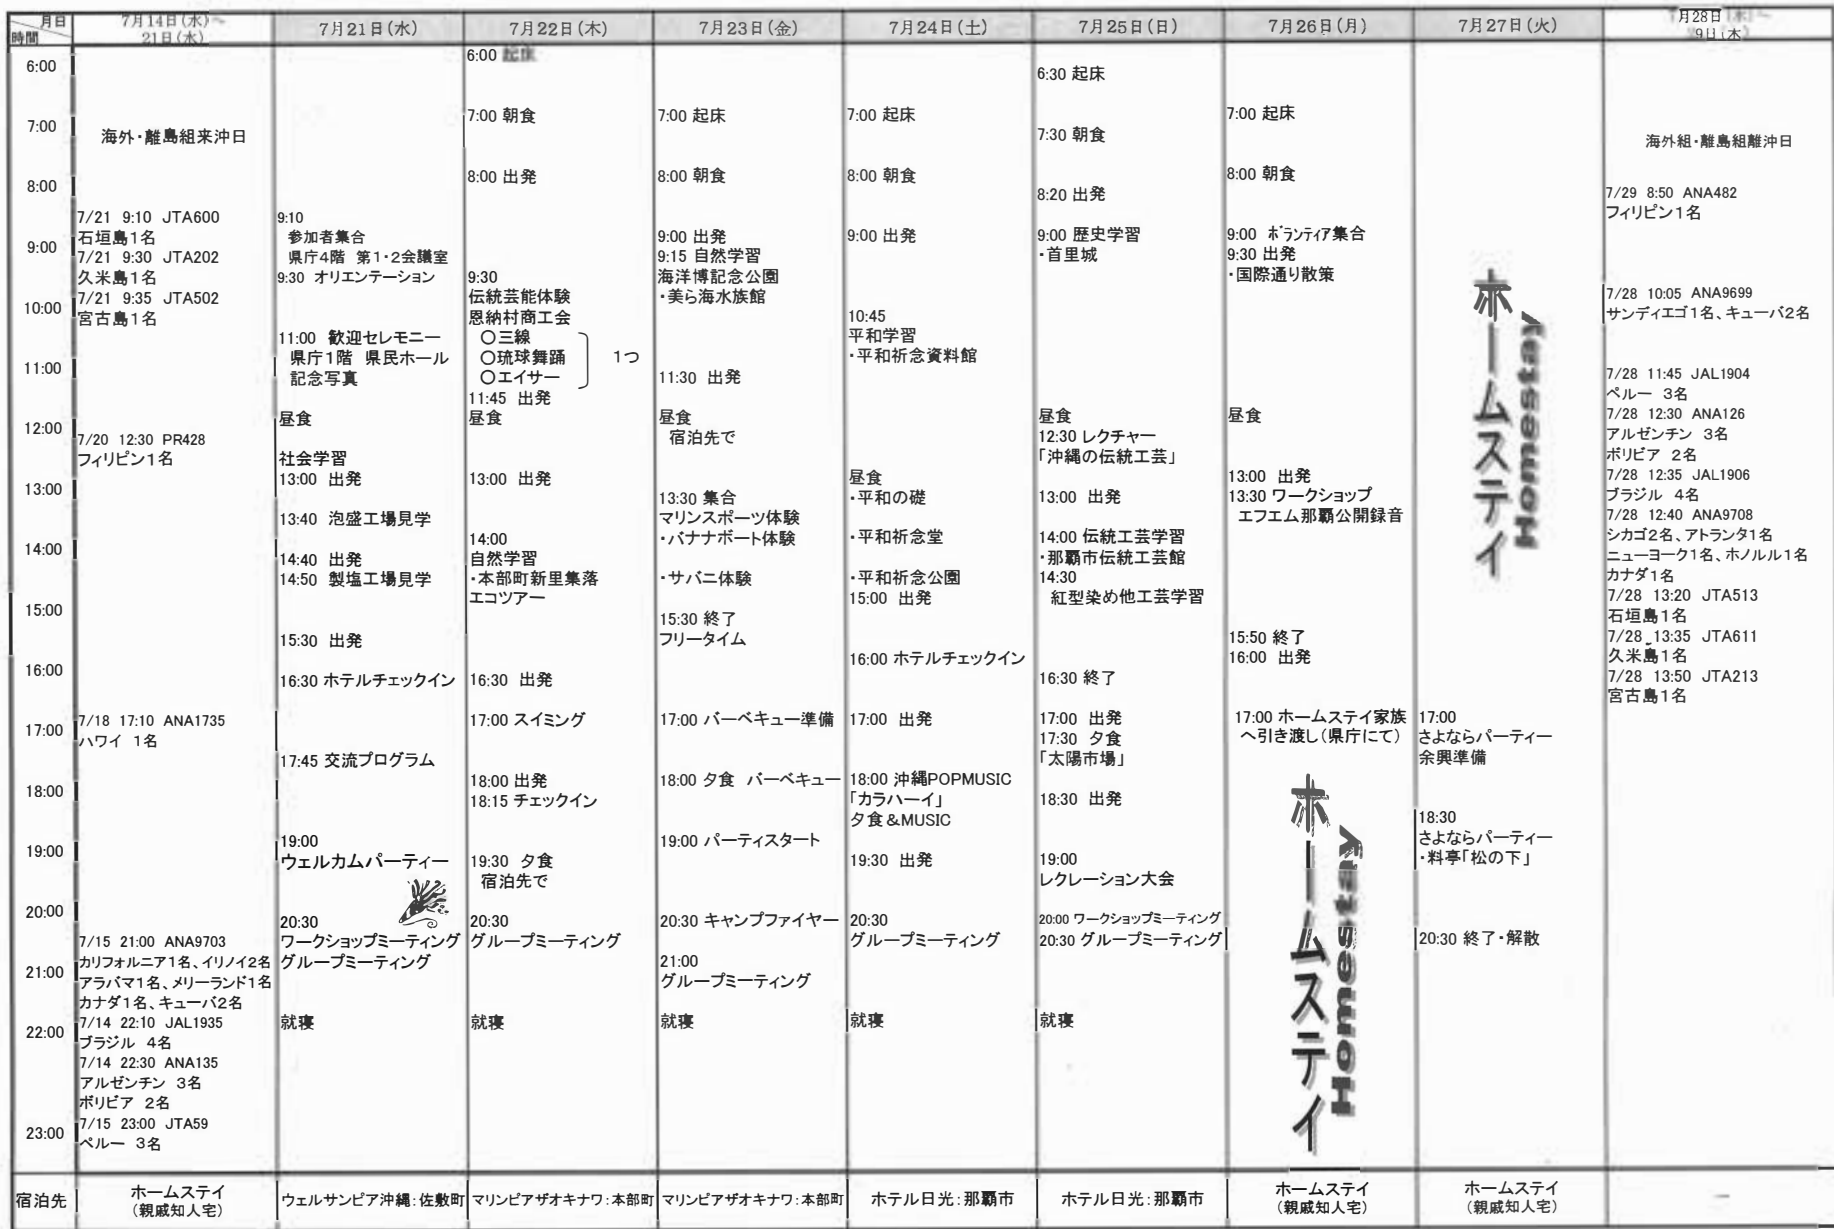 月日
時間
7月14日(水)～
21日(水)
7月21日(水)
7月22日(木)
7月23日(金)
7月24日(土)
7月25日(日)
7月26日(月)
7月27日(火)
月28日
9日(木)
6:00
7:00
8:00
9:00
10:00
11:00
12:00
13:00
14:00
15:00
16:00
17:00
18:00
19:00
20:00
21:00
22:00
23:00
宿泊先
海外・離島組来沖日
7/21 9:10 JTA600
石垣島1名
7/21 9:30 JTA202
久米島1名
7/21 9:35 JTA502
宮古島1名
7/20 12:30 PR428
フィリピン1名
7/18 17:10 ANA1735
ハワイ 1名
7/15 21:00 ANA9703
カリフォルニア1名、イリノイ2名
アラバマ1名、メリーランド1名
カナダ1名、キューバ2名
7/14 22:10 JAL1935
ブラジル 4名
7/14 22:30 ANA135
アルゼンチン 3名
ボリビア 2名
7/15 23:00 JTA59
ペルー 3名
ホームステイ
(親戚知人宅)
9:10
参加者集合
県庁4階 第1・2会議室
9:30 オリエンテーション
11:00 歓迎セレモニー
県庁1階 県民ホール
記念写真
昼食
社会学習
13:00 出発
13:40 泡盛工場見学
14:40 出発
14:50 製塩工場見学
15:30 出発
16:30 ホテルチェックイン
17:45 交流プログラム
19:00
ウェルカムパーティー
20:30
ワークショップミーティング
グループミーティング
就寝
ウェルサンピア沖縄:佐敷町
6:00 起床
7:00 朝食
8:00 出発
9:30
伝統芸能体験
恩納村商工会
〇三線
〇琉球舞踊
〇エイサー
1つ
11:45 出発
昼食
13:00 出発
14:00
自然学習
・本部町新里集落
エコツアー
16:30 出発
17:00 スイミング
18:00 出発
18:15 チェックイン
19:30 夕食
宿泊先で
20:30
グループミーティング
就寝
マリンピアザオキナワ:本部町
7:00 起床
8:00 朝食
9:00 出発
9:15 自然学習
海洋博記念公園
・美ら海水族館
11:30 出発
昼食
宿泊先で
13:30 集合
マリンスポーツ体験
・バナナボート体験
・サバニ体験
15:30 終了
フリータイム
17:00 バーベキュー準備
18:00 夕食 バーベキュー
19:00 パーティスタート
20:30 キャンプファイヤー
21:00
グループミーティング
就寝
マリンピアザオキナワ:本部町
7:00 起床
8:00 朝食
9:00 出発
10:45
平和学習
・平和祈念資料館
昼食
・平和の礎
・平和祈念堂
・平和祈念公園
15:00 出発
16:00 ホテルチェックイン
17:00 出発
18:00 沖縄POPMUSIC
「カラハーイ」
夕食＆MUSIC
19:30 出発
20:30
グループミーティング
就寝
ホテル日光:那覇市
6:30 起床
7:30 朝食
8:20 出発
9:00 歴史学習
・首里城
昼食
12:30 レクチャー
「沖縄の伝統工芸」
13:00 出発
14:00 伝統工芸学習
・那覇市伝統工芸館
14:30
紅型染め他工芸学習
16:30 終了
17:00 出発
17:30 夕食
「太陽市場」
18:30 出発
19:00
レクレーション大会
20:00 ワークショップミーティング
20:30 グループミーティング
就寝
ホテル日光:那覇市
7:00 起床
8:00 朝食
9:00 ボランティア集合
9:30 出発
・国際通り散策
昼食
13:00 出発
13:30 ワークショップ
エフエム那覇公開録音
15:50 終了
16:00 出発
17:00 ホームステイ家族
へ引き渡し(県庁にて)
ホームステイ
Homestay
ホームステイ
(親戚知人宅)
ホームステイ
Homestay
17:00
さよならパーティー
余興準備
18:30
さよならパーティー
・料亭「松の下」
20:30 終了・解散
ホームステイ
(親戚知人宅)
海外組・離島組離沖日
7/29 8:50 ANA482
フィリピン1名
7/28 10:05 ANA9699
サンディエゴ1名、キューバ2名
7/28 11:45 JAL1904
ペルー 3名
7/28 12:30 ANA126
アルゼンチン 3名
ボリビア 2名
7/28 12:35 JAL1906
ブラジル 4名
7/28 12:40 ANA9708
シカゴ2名、アトランタ1名
ニューヨーク1名、ホノルル1名
カナダ1名
7/28 13:20 JTA513
石垣島1名
7/28 13:35 JTA611
久米島1名
7/28 13:50 JTA213
宮古島1名